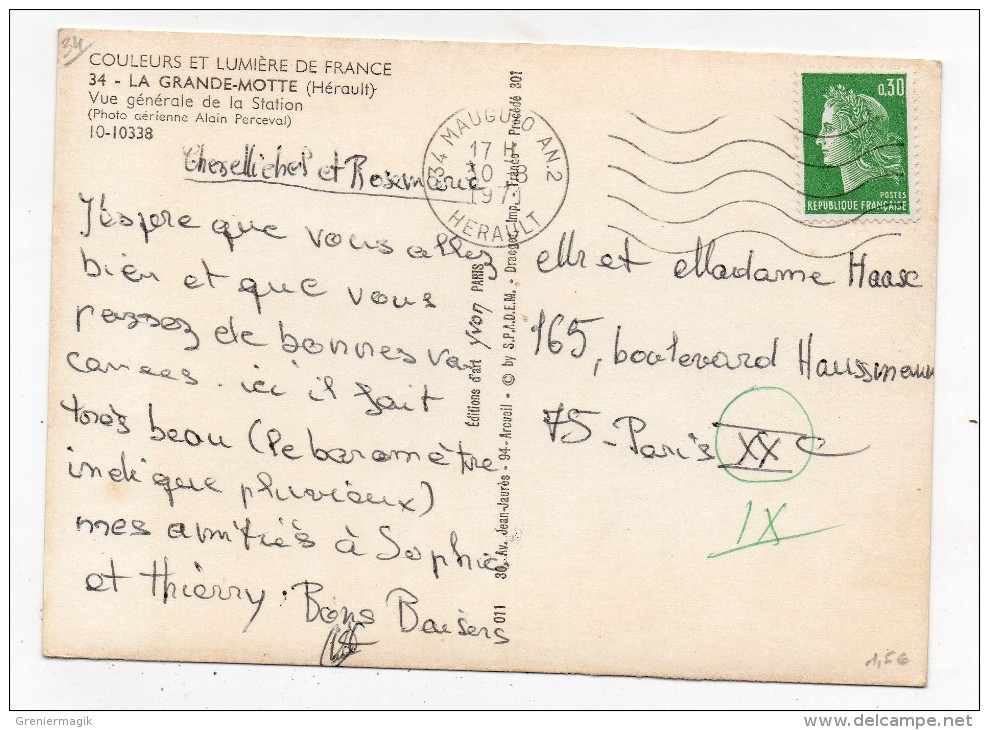 34
COULEURS ET LUMIÈRE DE FRANCE
34 - LA GRANDE-MOTTE (Hérault)
Vue générale de la Station
(Photo aérienne Alain Perceval)
10-10338
et Rosemarie
J'éspère que vous allez
bien et que vous
passez de bonnes va
cances. ici il fait
très beau (le baromètre
indique pluvieux)
mes amitiés à Sophie
et thierry. Bons Baisers
34 MAUGUIO AN.2
17 H
10 -8
197
HERAULT
0,30
POSTES
REPUBLIQUE FRANÇAISE
Editions d'art yvon PARIS
011 30, Av. Jean-Jaurès - 94-Arcueil - © by S.P.A.D.E.M. - Draeger, Imp. - France - Procédé 301
Mr et Madame Haase
165, boulevard Haussmann
75 - Paris XX e
IX
1,5€
Greniermagik
www.delcampe.net